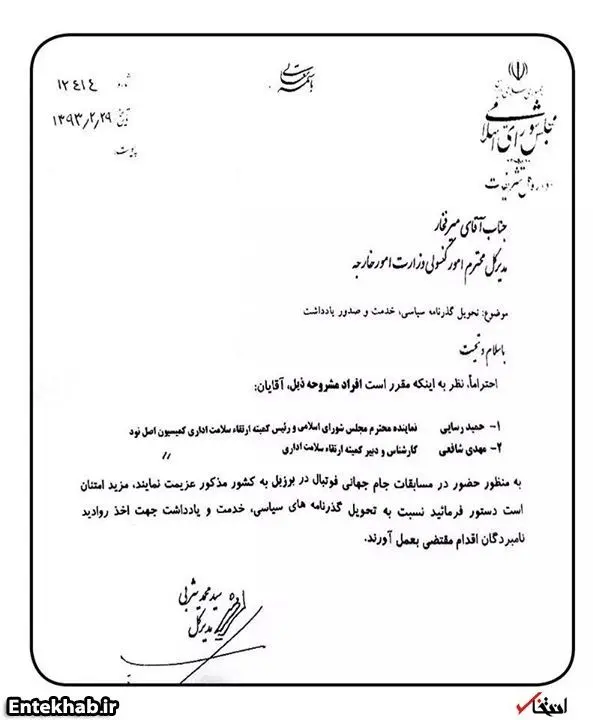 باسمه تعالی
جمهوری اسلامی ایران
مجلس شورای اسلامی
اداره کل تشریفات
شماره ۱۲۴۱۴
تاریخ ۱۳۹۳/۲/۲۹
پیوست:
جناب آقای میرفخار
مدیرکل محترم امور کنسولی وزارت امور خارجه
موضوع: تحویل گذرنامه سیاسی، خدمت و صدور یادداشت
با سلام و تحیت
احتراماً، نظر به اینکه مقرر است افراد مشروحه ذیل، آقایان:
۱- حمید رسایی نماینده محترم مجلس شورای اسلامی و رئیس کمیته ارتقاء سلامت اداری کمیسیون اصل نود
۲- مهدی شافعی کارشناس و دبیر کمیته ارتقاء سلامت اداری //
به منظور حضور در مسابقات جام جهانی فوتبال در برزیل به کشور مذکور عزیمت نمایند، مزید امتنان
است دستور فرمائید نسبت به تحویل گذرنامه های سیاسی، خدمت و یادداشت جهت اخذ روادید
نامبردگان اقدام مقتضی بعمل آورند.
سید محمد یثربی
مدیرکل
Entekhab.ir
انتخاب